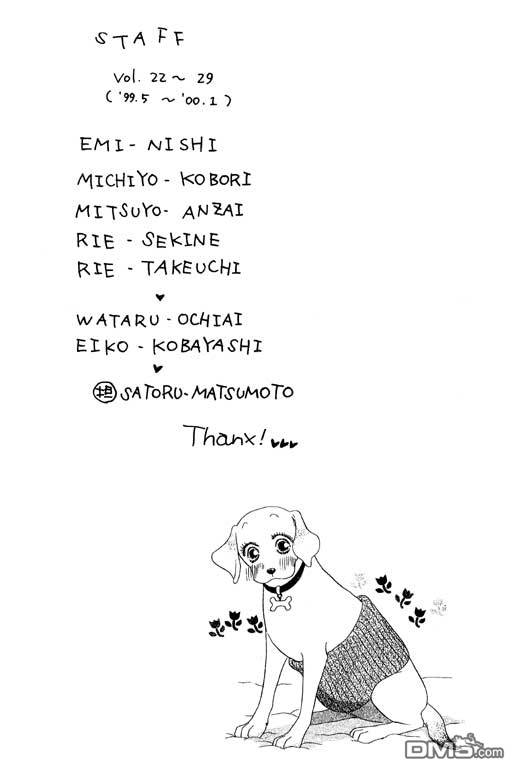 STAFF
Vol. 22 ~ 29
( '99.5 ~ '00.1 )
EMI - NISHI
MICHIYO - KOBORI
MITSUYO - ANZAI
RIE - SEKINE
RIE - TAKEUCHI
♥
WATARU - OCHIAI
EIKO - KOBAYASHI
♥
担 SATORU - MATSUMOTO
Thanx! ♥♥♥
DM5.com